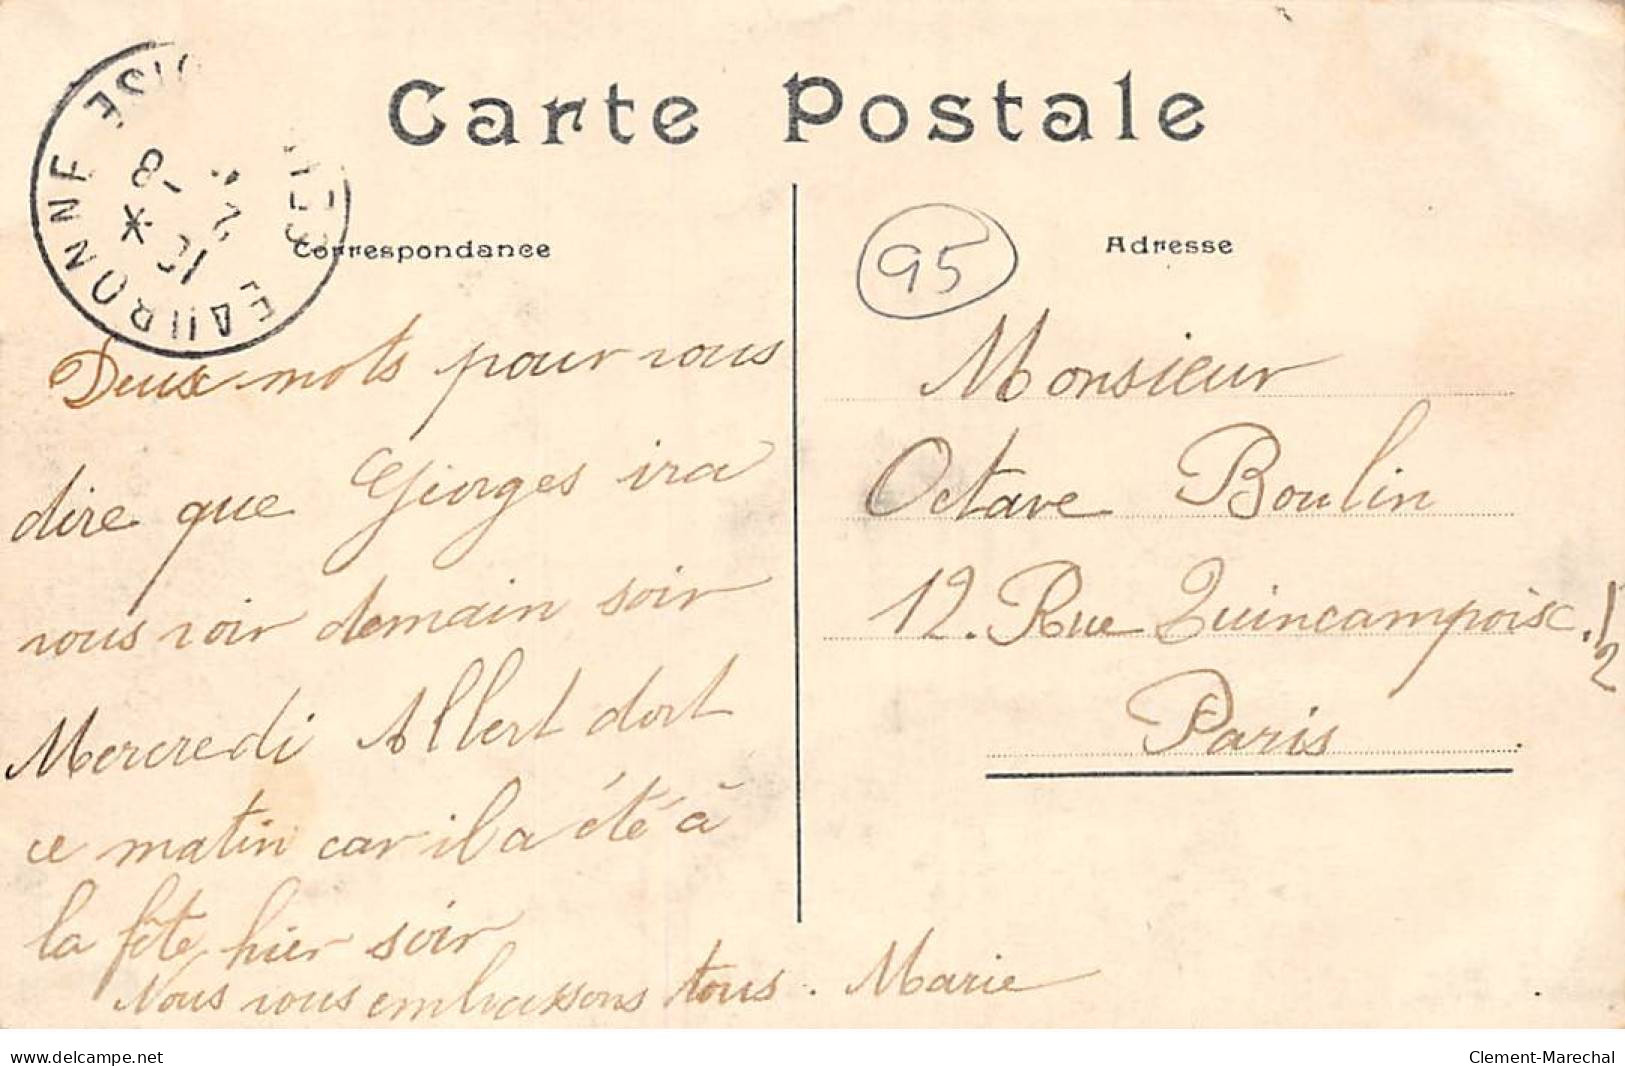 Carte Postale
Correspondance
Adresse
95
Deux mots pour vous
dire que Georges ira
vous voir demain soir
Mercredi Albert dort
ce matin car il a été à
la fête hier soir
Nous vous embrassons tous. Marie
Monsieur
Octave Boulin
12. Rue Quincampoix.
Paris
delcampe.net
Clement-Marechal